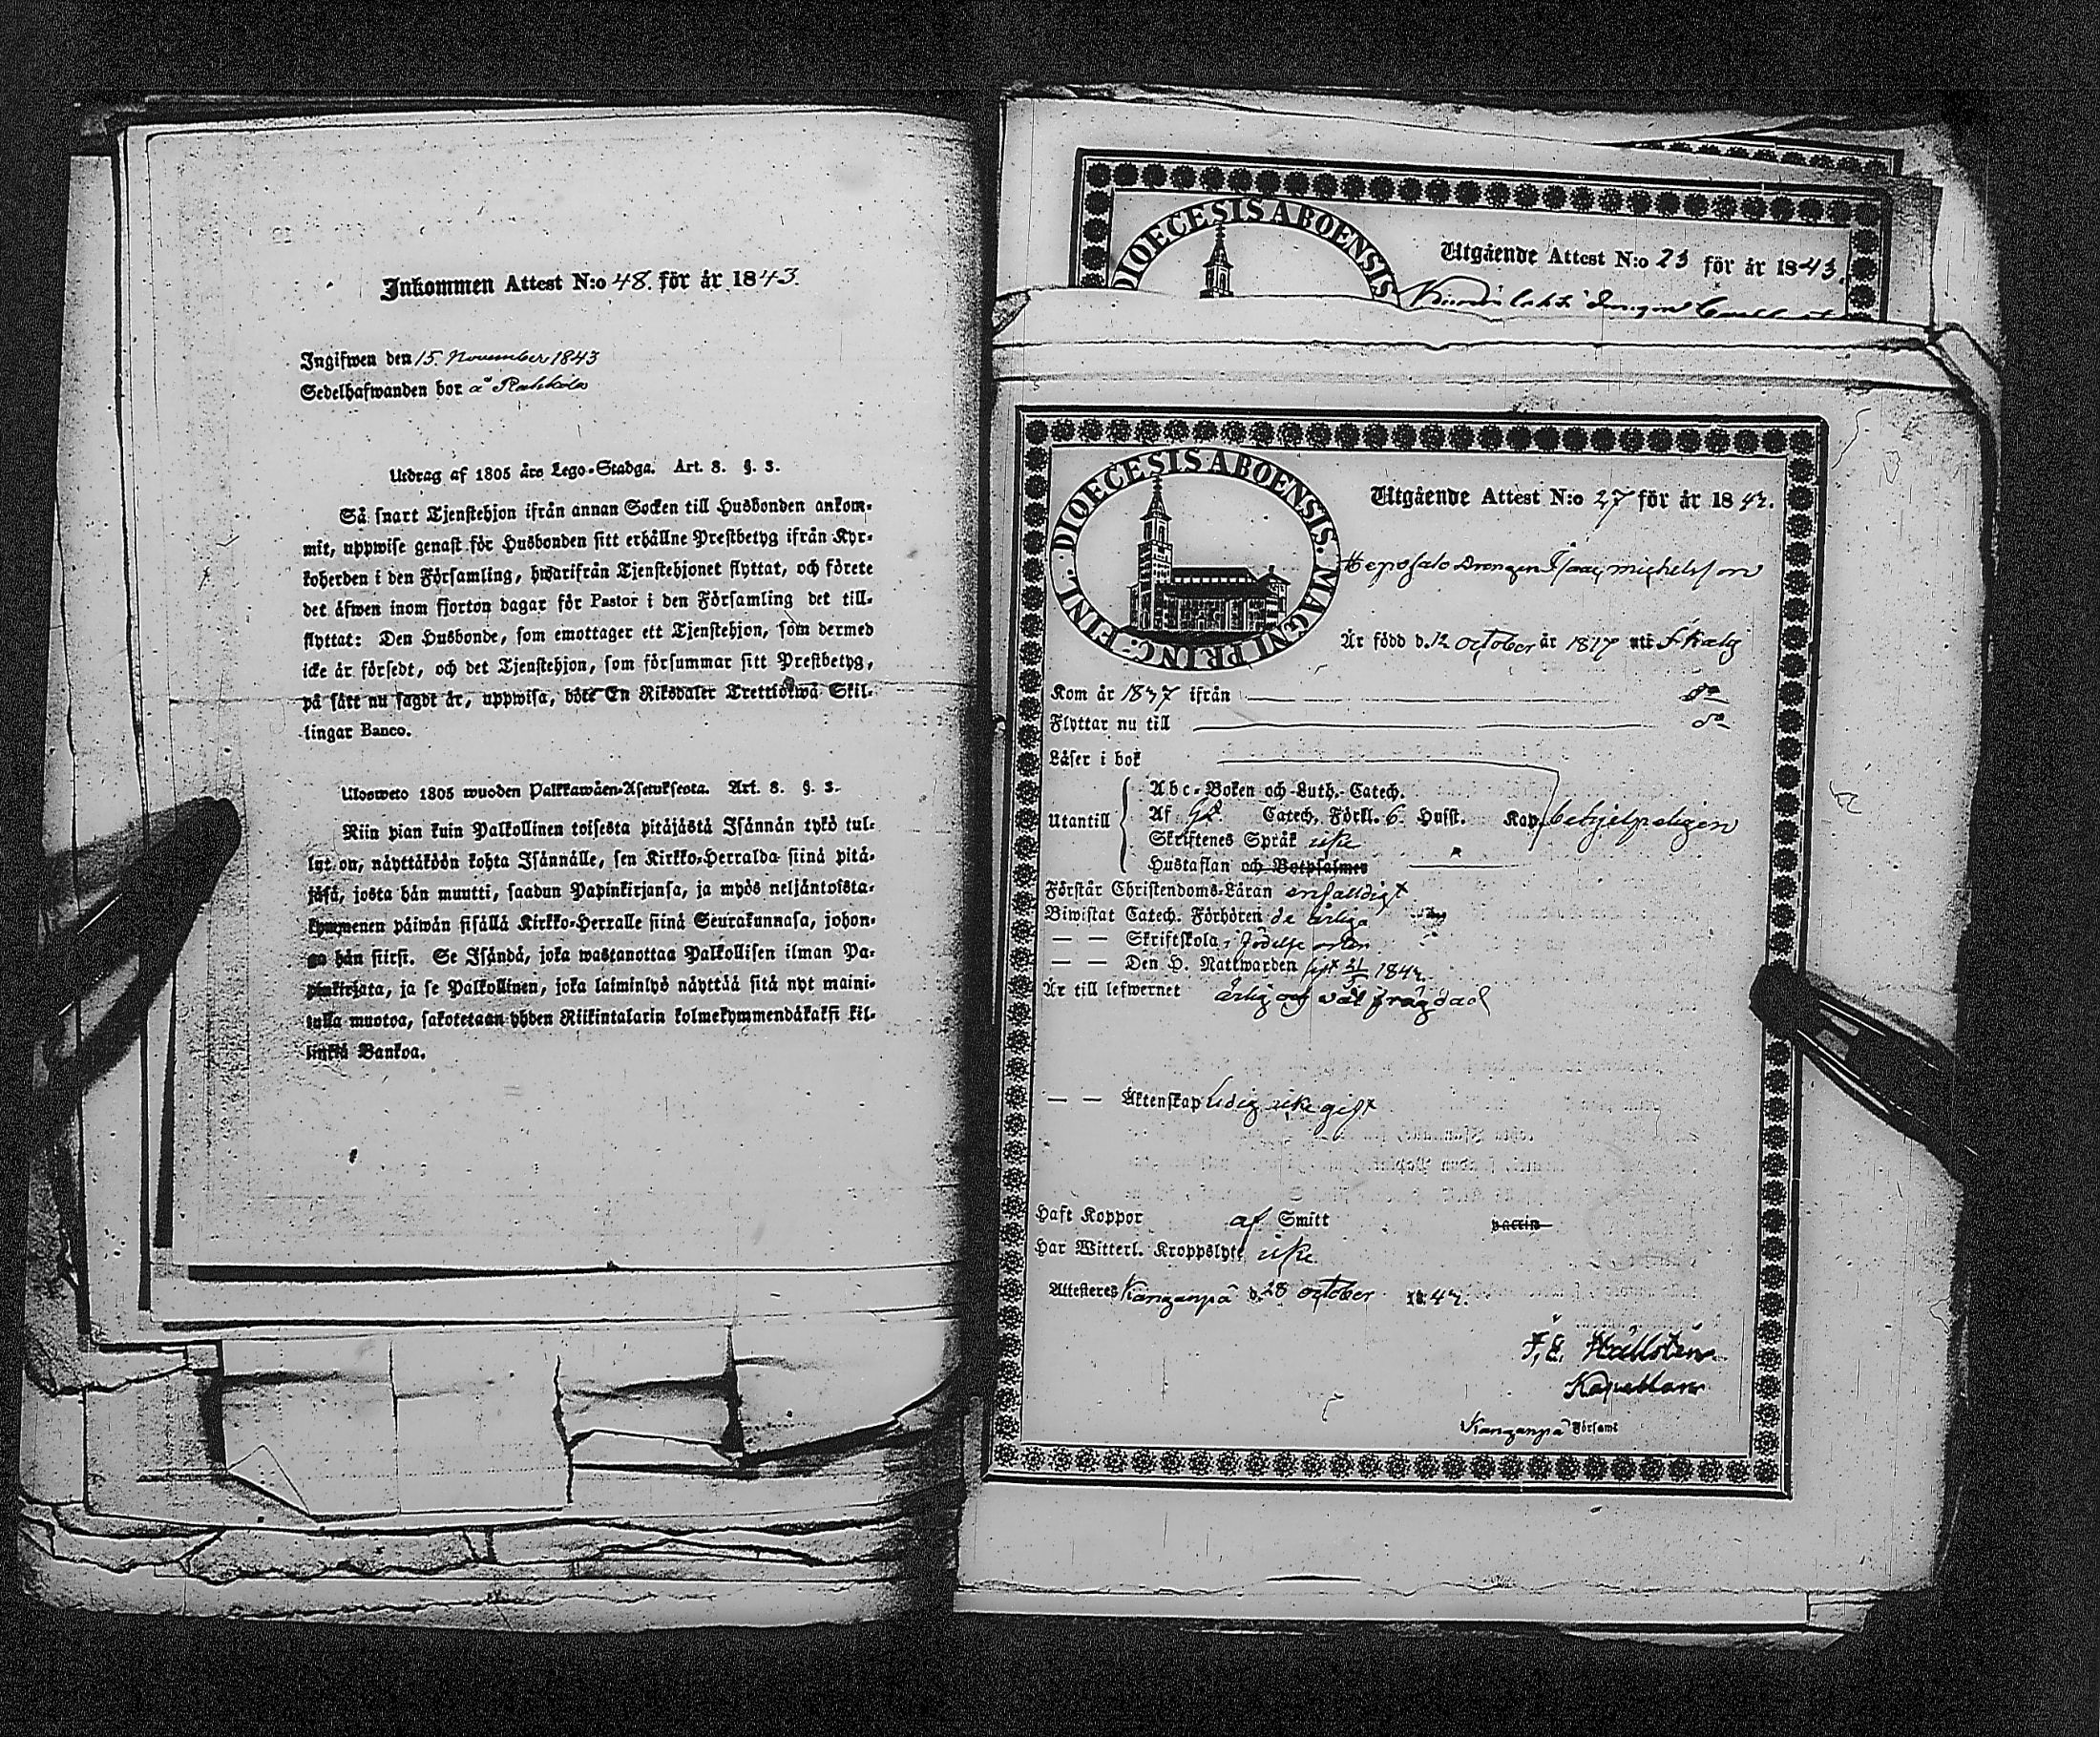 Inkommen Attest N:o 48. för år 1843.
Ingifwen den 15 November 1843
Sedelhafwanden bor å
Utdrag af 1805 års Lego-Stadga. Art. 8. §. 3.
Så snart Tjenstehjon ifrån annan Socken till Husbonden ankom-
mit, uppwise genast för Husbonden sitt erhållne Prestbetyg ifrån Kyr-
koherden i den Församling, hwarifrån Tjenstehjonet flyttat, och förete
det äfwen inom fjorton dagar för Pastor i den Församling det till-
flyttat: Den Husbonde, som emottager ett Tjenstehjon, som dermed
icke är försedt, och det Tjenstehjon, som försummar sitt Prestbetyg,
på sätt nu sagdt är, uppwisa, böte En Riksdaler Trettiotwå Skil-
lingar Banco.
Ulosweto 1805 wuoden Palkkawäen-Asetuksesta. Art. 8. §. 3.
Niin pian kuin Palkollinen toisesta pitäjästä Isännän tykö tul-
lyt on, näyttäköön kohta Isännälle, sen Kirkko-Herralda siinä pitä-
jäsä, josta hän muutti, saadun Papinkirjansa, ja myös neljäntoista-
kymmenen päiwän sisällä Kirkko-Herralle siinä Seurakunnasa, johon-
ga hän siirsi. Se Isändä, joka wastanottaa Palkollisen ilman Pa-
pinkirjata, ja se Palkollinen, joka laiminlyö näyttää sitä nyt maini-
tulla muotoa, sakotetaan yhden Riikintalarin kolmekymmendäkaksi kil-
linkiä Bankoa.
DIOECESIS ABOENSIS
Utgående Attest N:o 23 för år 1843.
DIOECESIS ABOENSIS. MAGNI PRINC: FINL.
Utgående Attest N:o 27 för år 1842.
Heposalo Drengen Isaac Michelsson
Är född d. 12 October år 1817 uti
Kom år 1837 ifrån
Flyttar nu till
Läser i bok
Utantill
Abc-Boken och Luth. Catech.
Af Catech. Förkl. 6 Husst. Kap. behjelpeligen
Skriftenes Språk icke
Hustaflan och Botpsalmer
Förstår Christendoms-Läran enfaldigt
Biwistat Catech. Förhören de årliga
— — Skriftskola, i födelse orten
— — Den H. Nattwarden sist 1842
Är till lefwernet ärlig och väl frägdad
— — Äktenskap Ledig icke gift
Haft Koppor af Smitt vaccin
Har Witterl. Kroppslyte icke
Attesteres Kanganpä d. 28 October 1842.
F. E. Hällsten
Kapellan
Kanganpä Församl